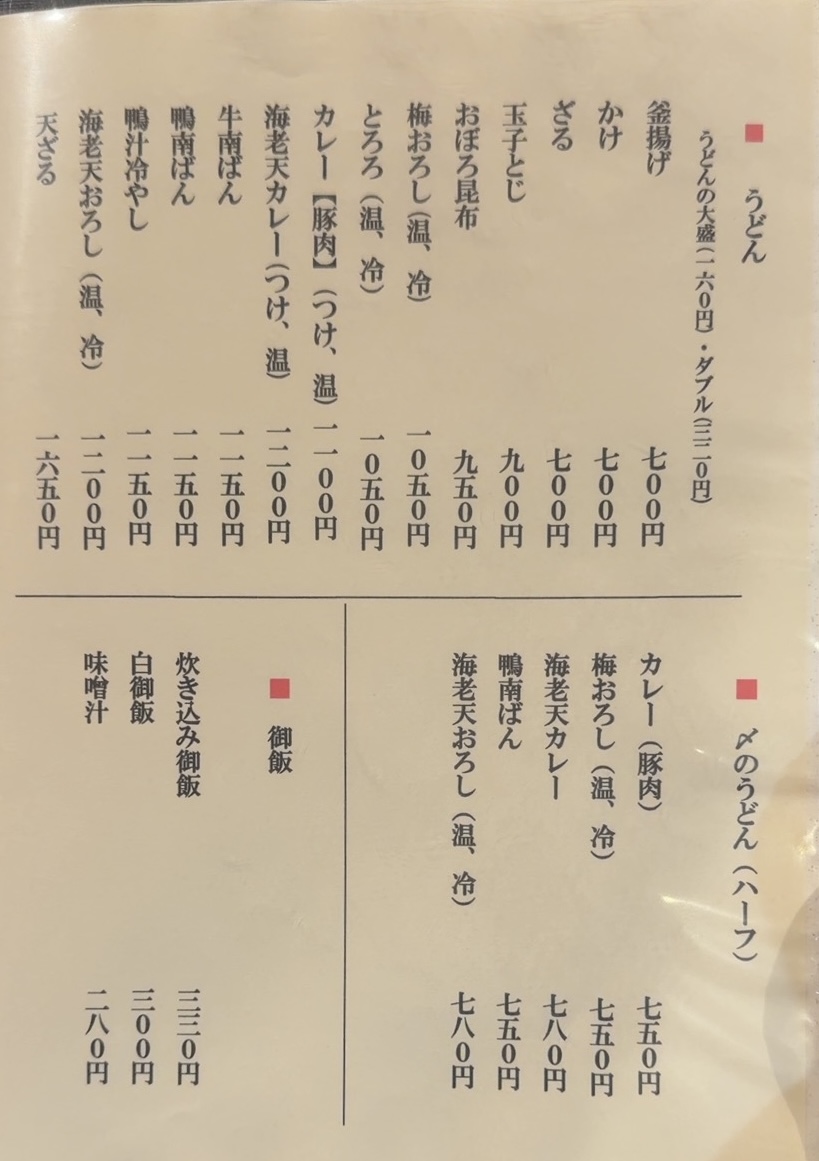 ■ うどん
うどんの大盛(一六0円)・ダブル(三二0円)
釜揚げ 七00円
かけ 七00円
ざる 七00円
玉子とじ 九00円
おぼろ昆布 九五0円
梅おろし(温、冷) 一0五0円
とろろ(温、冷) 一0五0円
カレー【豚肉】(つけ、温) 一一00円
海老天カレー(つけ、温) 一二00円
牛南ばん 一一五0円
鴨南ばん 一一五0円
鴨汁冷やし 一一五0円
海老天おろし(温、冷) 一二00円
天ざる 一六五0円
■ 〆のうどん(ハーフ)
カレー(豚肉) 七五0円
梅おろし(温、冷) 七五0円
海老天カレー 七八0円
鴨南ばん 七五0円
海老天おろし(温、冷) 七八0円
■ 御飯
炊き込み御飯 三三0円
白御飯 三00円
味噌汁 二八0円